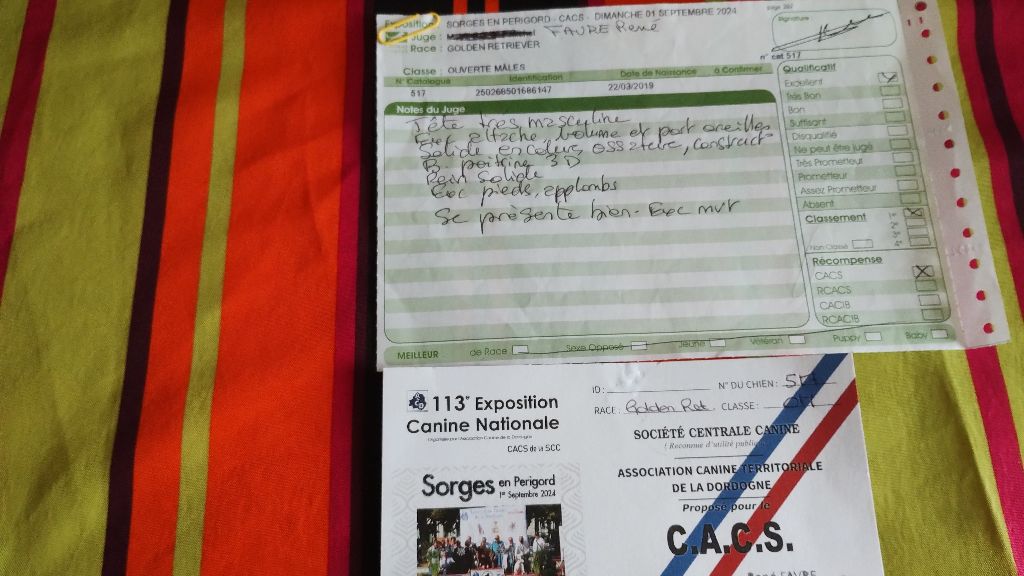 Exposition : SORGES EN PERIGORD - CACS - DIMANCHE 01 SEPTEMBRE 2024
page 262
Juge : FAVRE René
Race : GOLDEN RETRIEVER
Signature
n° cat 517
Classe : OUVERTE MÂLES
N° Catalogue Identification Date de Naissance à Confirmer
517 250268501686147 22/03/2019
Notes du Juge
Tête très masculine
Exc attache, volume et port oreilles
Solide encolure, ossature, construct
B poitrine 3D
Rein solide
Exc pieds, applombs
Se présente bien - Exc mvt
Qualificatif
Excellent
Très Bon
Bon
Suffisant
Disqualifié
Ne peut être jugé
Très Prometteur
Prometteur
Assez Prometteur
Absent
Classement 1er
2e
3e
4e
Non Classé
Récompense
CACS
RCACS
CACIB
RCACIB
MEILLEUR de Race Sexe Opposé Jeune Vétéran Puppy Baby
113e Exposition
Canine Nationale
Organisée par l'Association Canine de la Dordogne
CACS de la SCC
Sorges en Perigord
1er Septembre 2024
ID : N° DU CHIEN : 517
RACE : Golden Ret. CLASSE : OM
SOCIÉTÉ CENTRALE CANINE
( Reconnue d'utilité publique )
ASSOCIATION CANINE TERRITORIALE
DE LA DORDOGNE
Propose pour le
C.A.C.S.
René FAVRE